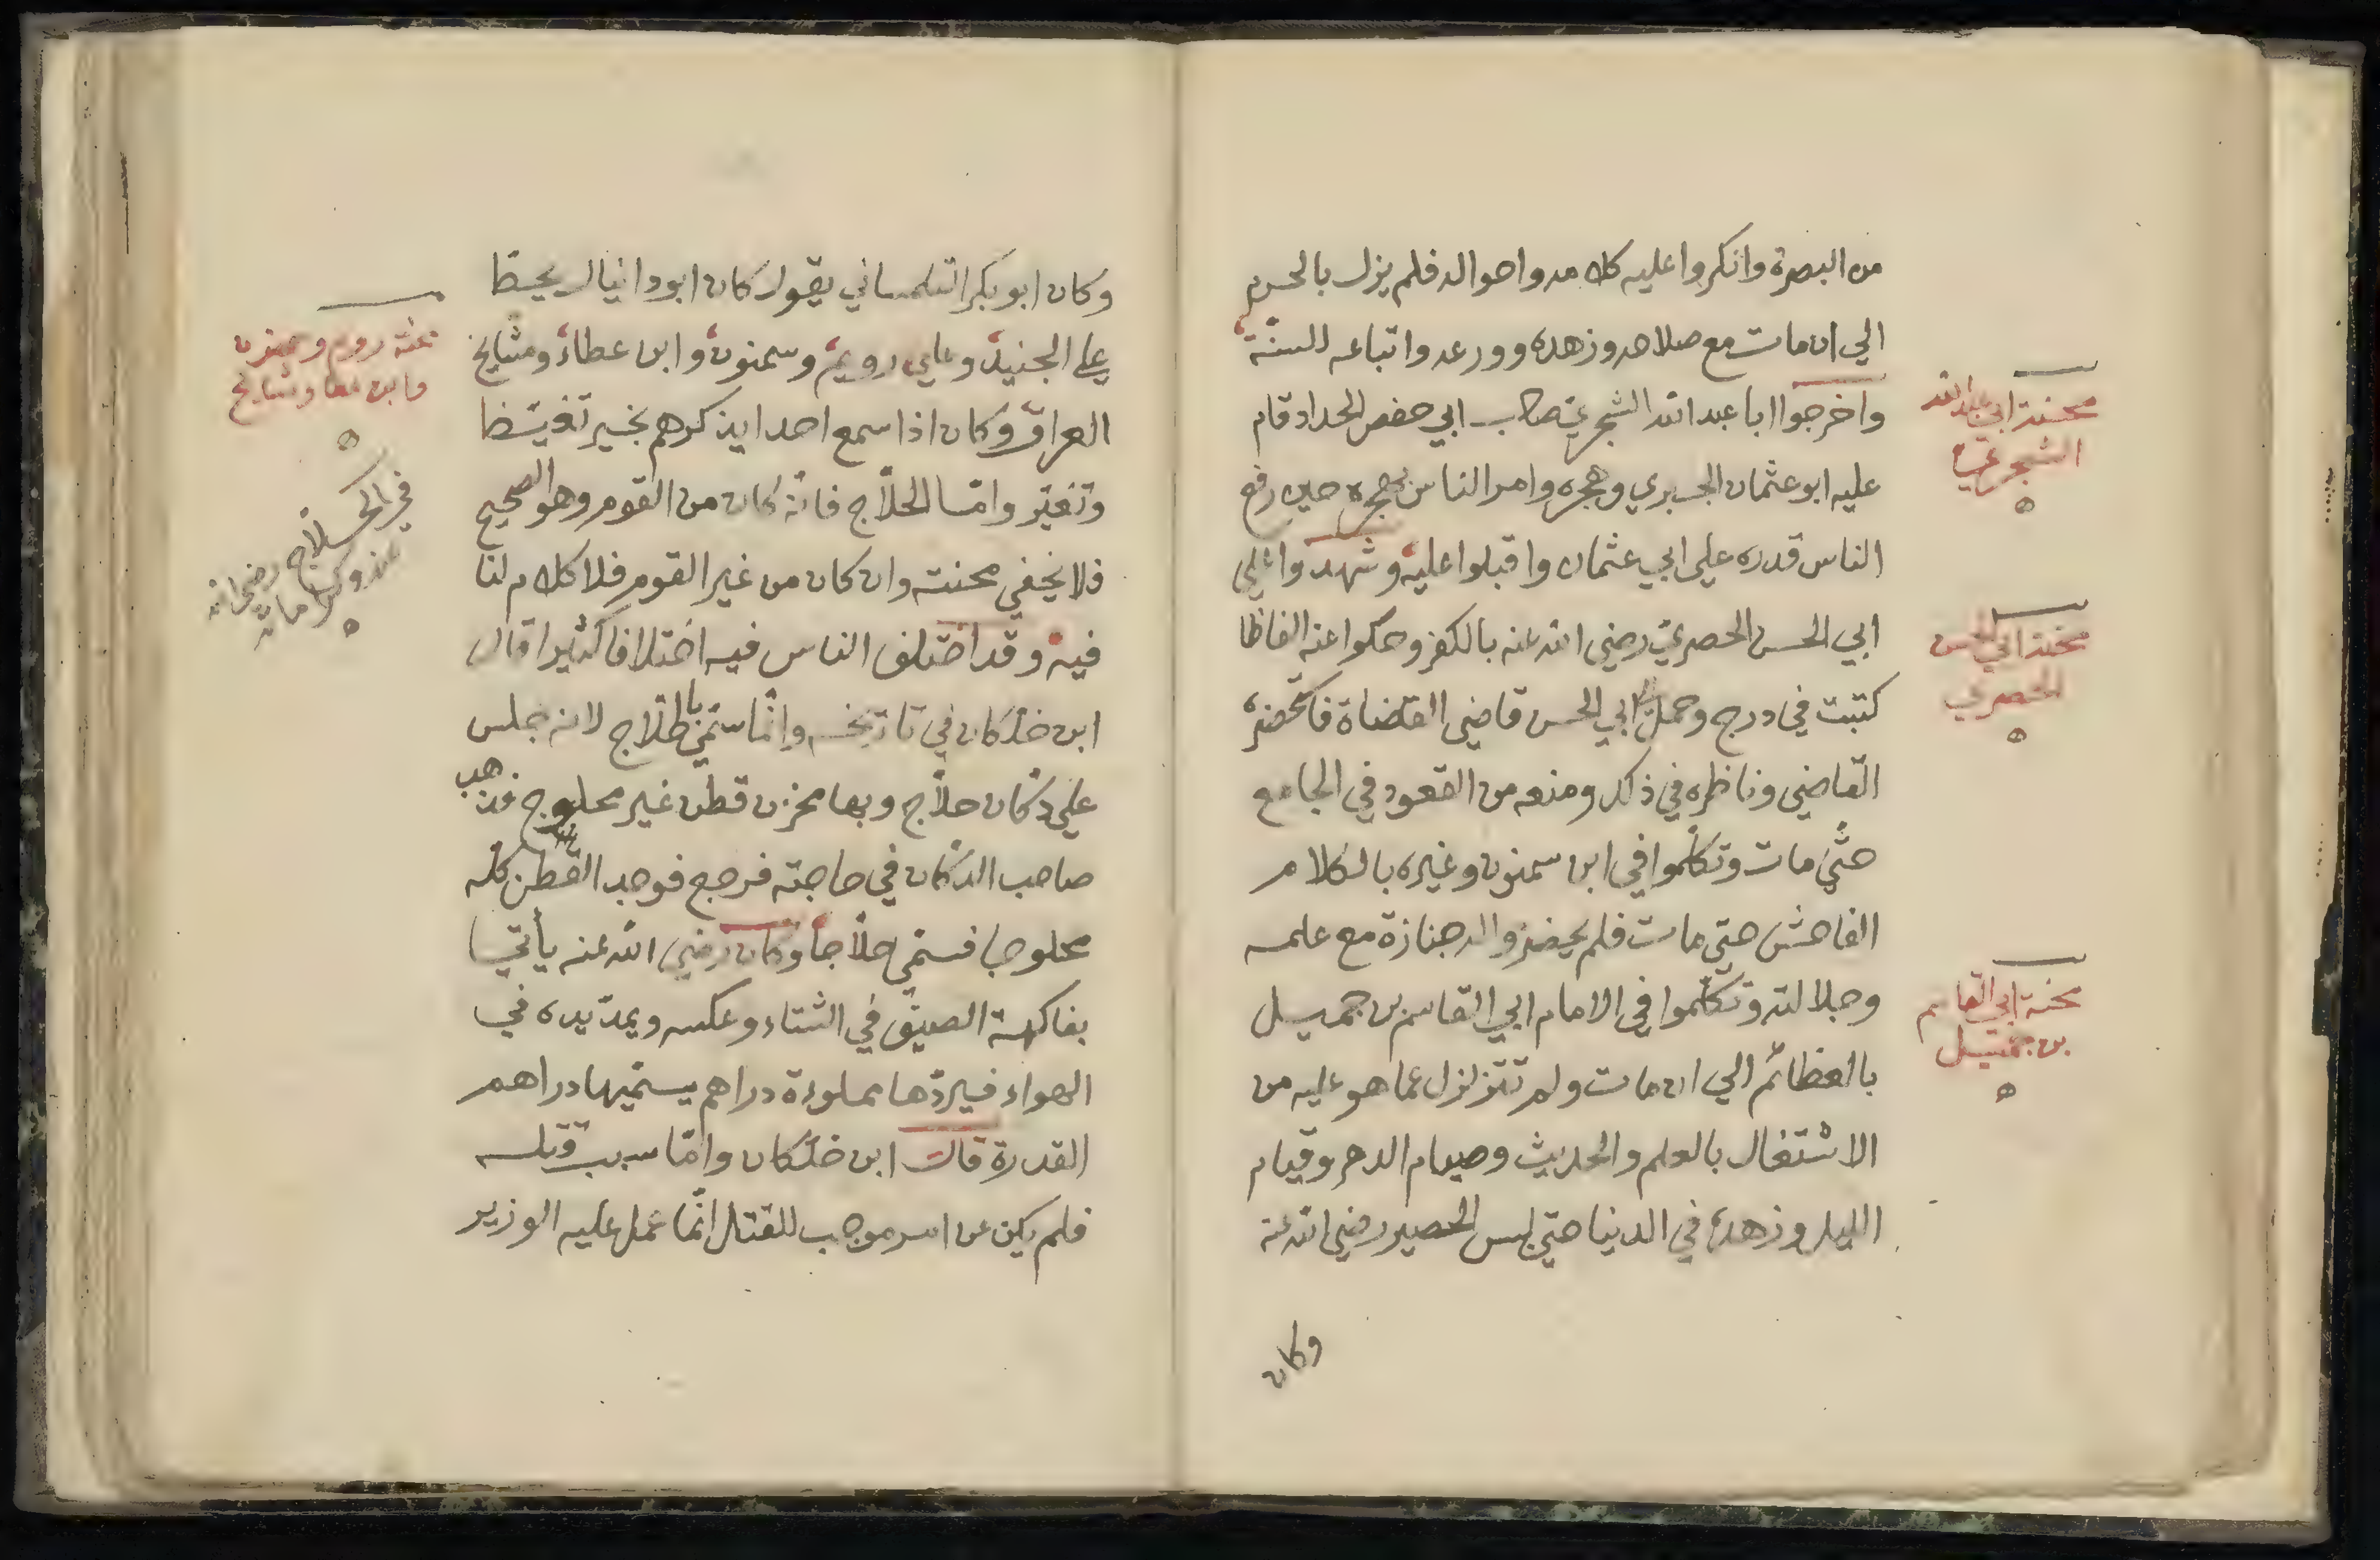 من البصرة وانكروا عليه كلامه واحواله فلم يزل بالحرم
الي ان مات مع صلاحه وزهده وورعه واتباعه للسنة
واخرجوا ابا عبد الله الشجري صاحب ابي حفص الحداد قام
عليه ابو عثمان الجبري وهجره وامر الناس بهجره حين رفع
الناس قدره علي ابي عثمان واقبلوا عليه وشهدوا علي
ابي الحسن الحصري رضي الله عنه بالكفر وحكوا عنه الفاظا
كتبت في درج وحمل الي ابي الحسن قاضي القضاة فاستحضره
القاضي وناظره في ذلك ومنعه من القعود في الجامع
حتي مات وتكلموا في ابن سمنون وغيره بالكلام
الفاحش حتي مات فلم يحضروا له جنازة مع علمه
وجلالته وتكلموا في الامام ابي القاسم بن جميل
بالعظائم الي ان مات ولم تتزلزل عما هو عليه من
الاشتغال بالعلم والحديث وصيام الدهر وقيام
الليل وزهده في الدنيا حتي لبس الحصير رضي الله عنه
وكان
محنة ابي عبد الله
الشجري
محنة ابي الحسن
الحصري
محنة ابي القاسم
بن جميل
وكان ابو بكر التلمساني يقول كان ابو دانيال يحيط
علي الجنيد وعلي رويم وسمنون وابن عطاء ومشايخ
العراق وكان اذا سمع احدا يذكرهم بخير تغيّظا
وتغيّر وامّا الحلّاج فانّه كان من القوم وهو الصحيح
فلا يخفي محنته وان كان من غير القوم فلا كلام لنا
فيه وقد اختلف الناس فيه اختلافا كثيرا قال
ابن خلكان في تاريخه وانّما سمّي بالحلاج لانه جلس
علي دكان حلّاج وبها مخزن قطن غير محلوج فذهب
صاحب الدكان في حاجته فرجع فوجد القطن كله
محلوجا فسمّي حلّاجا وكان رضي الله عنه يأتي
بفاكهة الصيف في الشتاء وعكسه ويمدّ يده في
الهواء فيردّها مملوءة دراهم يسمّيها دراهم
القدرة قال ابن خلكان وامّا سبب قتله
فلم يكن عن امر موجب للقتل انّما عمل عليه الوزير
محنة رويم وسمنون
وابن عطا ومشايخ
في الحلاج رضي الله
عنه وكراماته